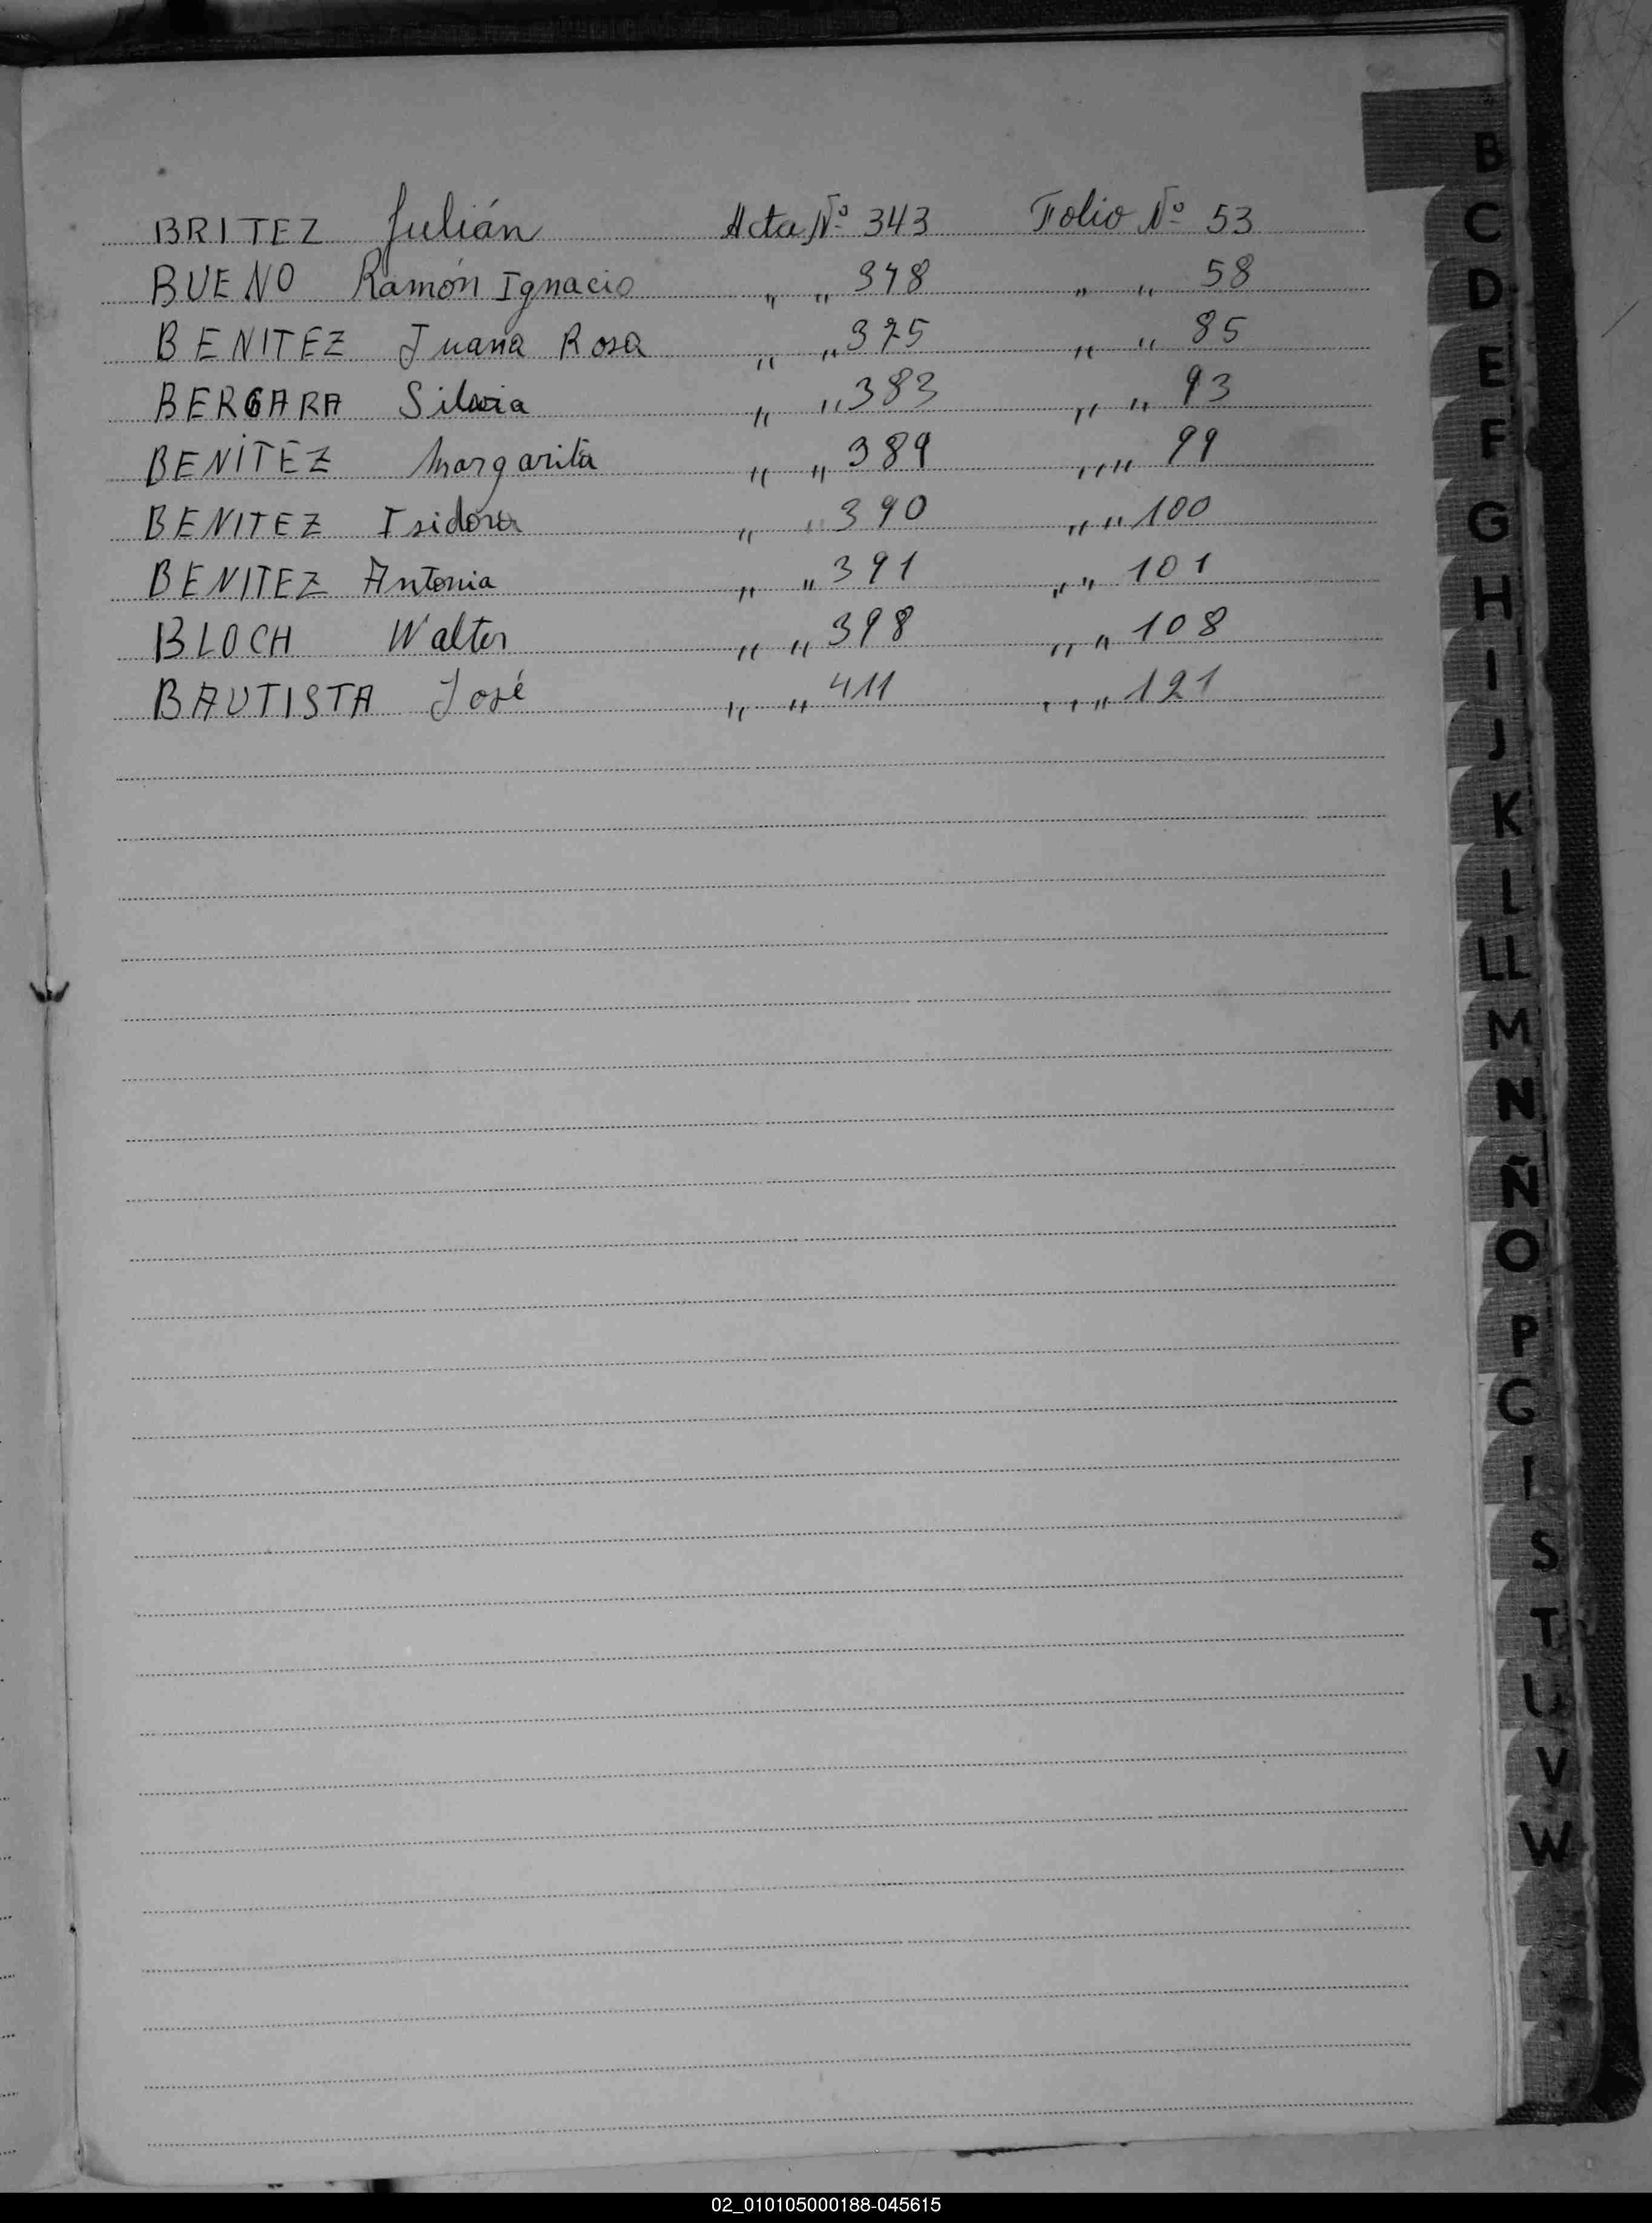 BRITEZ Julián Acta Nº 343 Folio Nº 53
BUENO Ramón Ignacio " " 348 " " 58
BENITEZ Juana Rosa " " 375 " " 85
BERGARA Silvia " " 383 " " 93
BENITEZ Margarita " " 389 " " 99
BENITEZ Isidora " " 390 " " 100
BENITEZ Antonia " " 391 " " 101
BLOCH Walter " " 398 " " 108
BAUTISTA José " " 411 " " 121
B
C
D
E
F
G
H
I
J
K
L
LL
M
N
Ñ
O
P
S
T
U
V
W
02_010105000188-045615